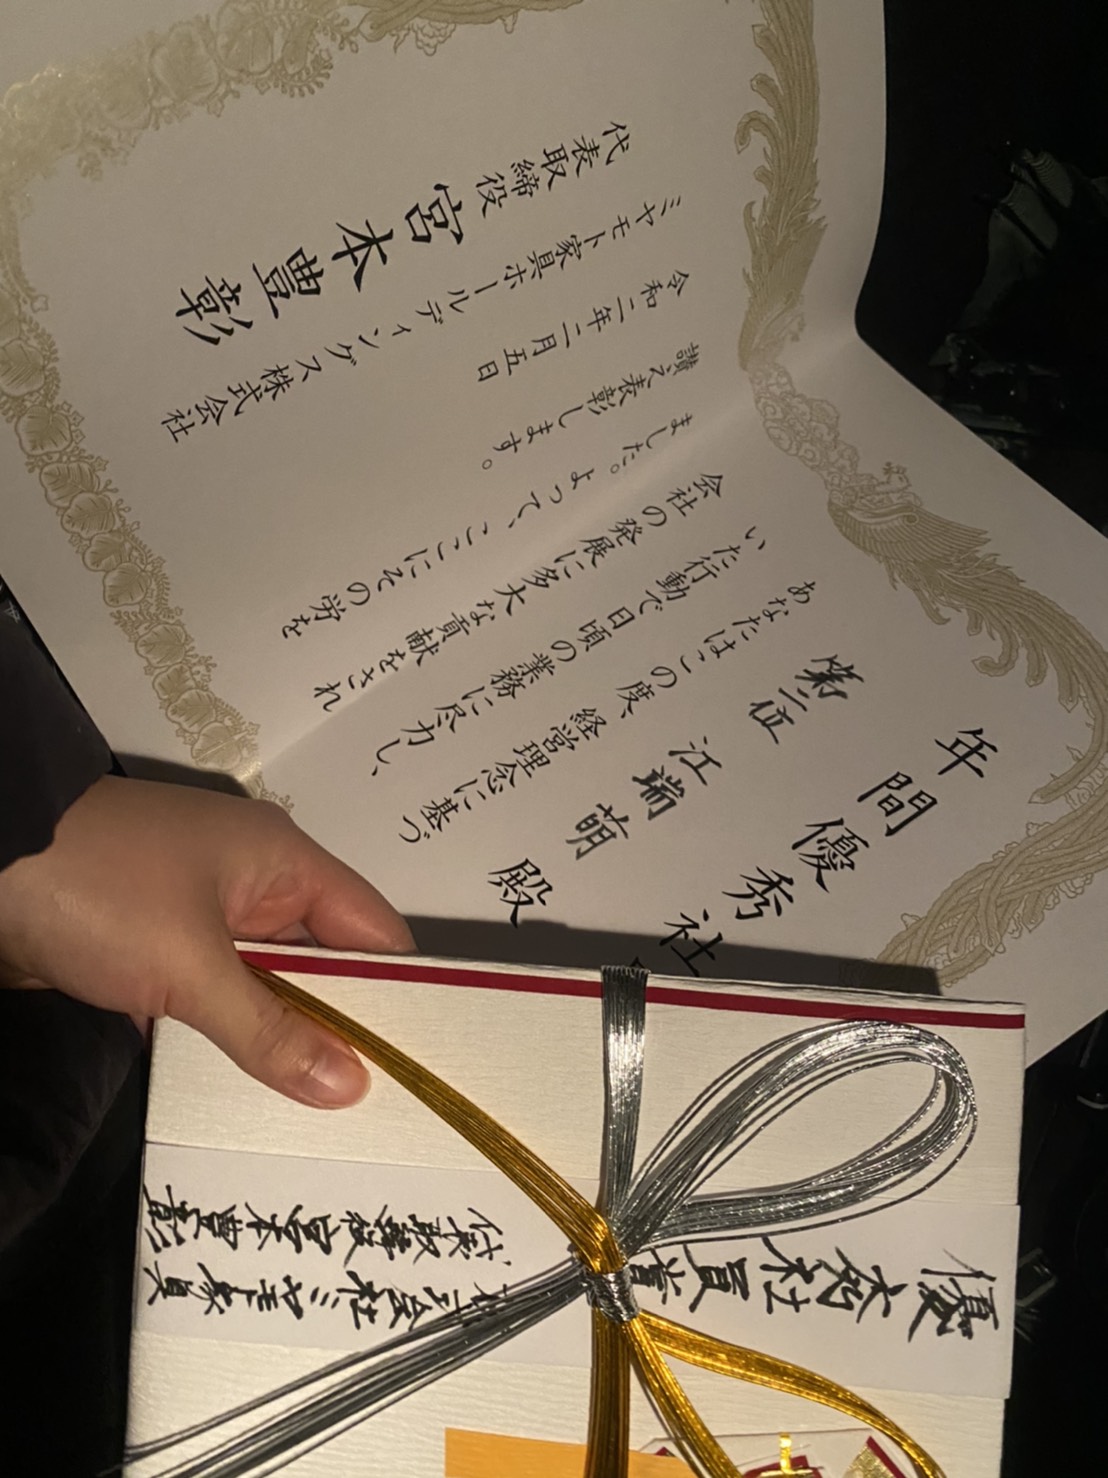 年間優秀社
第二位
江瑞萌 殿
あなたは、この度、経営理念に基づ
いた行動で日頃の業務に尽力し、
会社の発展に多大な貢献をされ
ました。よって、ここにその労を
讃え表彰します。
令和二年二月五日
ミヤモト家具ホールディングス株式会社
代表取締役 宮本豊彰
優秀社員賞
株式会社ミヤモト家具
代表取締役 宮本豊彰